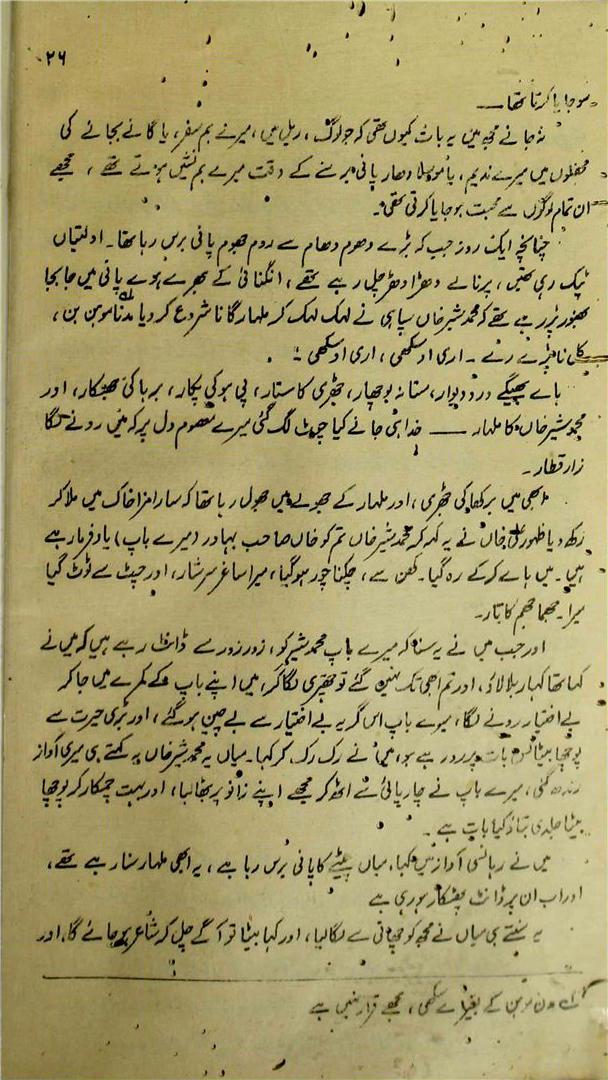 ۲۶
ہو جایا کرتا تھا ــــ
نہ جانے مجھ میں یہ بات کیوں تھی کہ جو لوگ، ریل میں، میرے ہم سفر، یا گانے بجانے کی
محفلوں میں میرے ندیم، یا موسلا دھار پانی برسنے کے وقت میرے ہم نشیں ہوتے تھے، مجھے
ان تمام لوگوں سے محبت ہو جایا کرتی تھی۔
چنانچہ ایک روز جب کہ بڑے دھوم دھام سے روم جھوم پانی برس رہا تھا۔ اولتیاں
ٹپک رہی تھیں، پرنالے دھڑا دھڑ چل رہے تھے، انگنائی کے بھرے ہوے پانی میں جا بجا
بھنور پڑ رہے تھے کہ محمد شیر خاں سپاہی نے لہک لہک کر ملہار گانا شروع کر دیا مدنا موہن بن،
کل نا پڑے رے ۔ اری او سکھی، اری او سکھی ۔
ہاے بھیگے در و دیوار، مستانہ بوچھار، جھڑی کا ستار، پی ہو کی پکار، برہا کی جھنکار، اور
محمد شیر خاں کا ملہار ــــ خدا ہی جانے کیا چوٹ لگ گئی میرے معصوم دل پر کہ میں رونے لگا
زار قطار ۔
ابھی میں برکھا کی جھڑی، اور ملہار کے جھولے میں جھول رہا تھا کہ سارا مزا خاک میں ملا کر
رکھ دیا ظہور علی خاں نے یہ کہہ کر کہ محمد شیر خاں تم کو خاں صاحب بہادر (میرے باپ) یاد فرما رہے
ہیں ۔ میں ہاے کر کے رہ گیا ۔ کھن سے، چکنا چور ہو گیا، میرا ساغر سرشار، اور جھٹ سے ٹوٹ گیا
میرا ۔ جھما جھم کا تار ۔
اور جب میں نے یہ سنا کہ میرے باپ محمد شیر کو، زور زور سے ڈانٹ رہے ہیں کہ میں نے
کہا تھا کہار بلا لاؤ، اور تم ابھی تک نہیں گئے تو جھری لگا کر، میں اپنے باپ کے کمرے میں جا کر
بے اختیار رونے لگا، میرے باپ اس گریہ بے اختیار سے بے چین ہو گئے، اور بڑی حیرت سے
پوچھا بیٹا کس بات پر رو رہے ہو، میں نے رک رک کر کہا ۔ میاں یہ محمد شیر خاں یہ کہتے ہی میری آواز
رندھ گئی، میرے باپ نے چارپائی سے اٹھ کر مجھے اپنے زانو پر بٹھا لیا، اور بہت چمکار کر پوچھا
بیٹا جلدی بتاؤ کیا بات ہے ۔
میں نے رہانسی آواز میں کہا، میاں کا پانی برس رہا ہے، یہ ابھی ملہار سنا رہے تھے،
اور اب ان پر ڈانٹ پھٹکار ہو رہی ہے
یہ سنتے ہی میاں نے مجھ کو چھاتی سے لگا لیا، اور کہا بیٹا تو آگے چل کر شاعر ہو جائے گا، اور
مدن موہن کے بغیر اے سکھی، مجھے قرار نہیں ہے